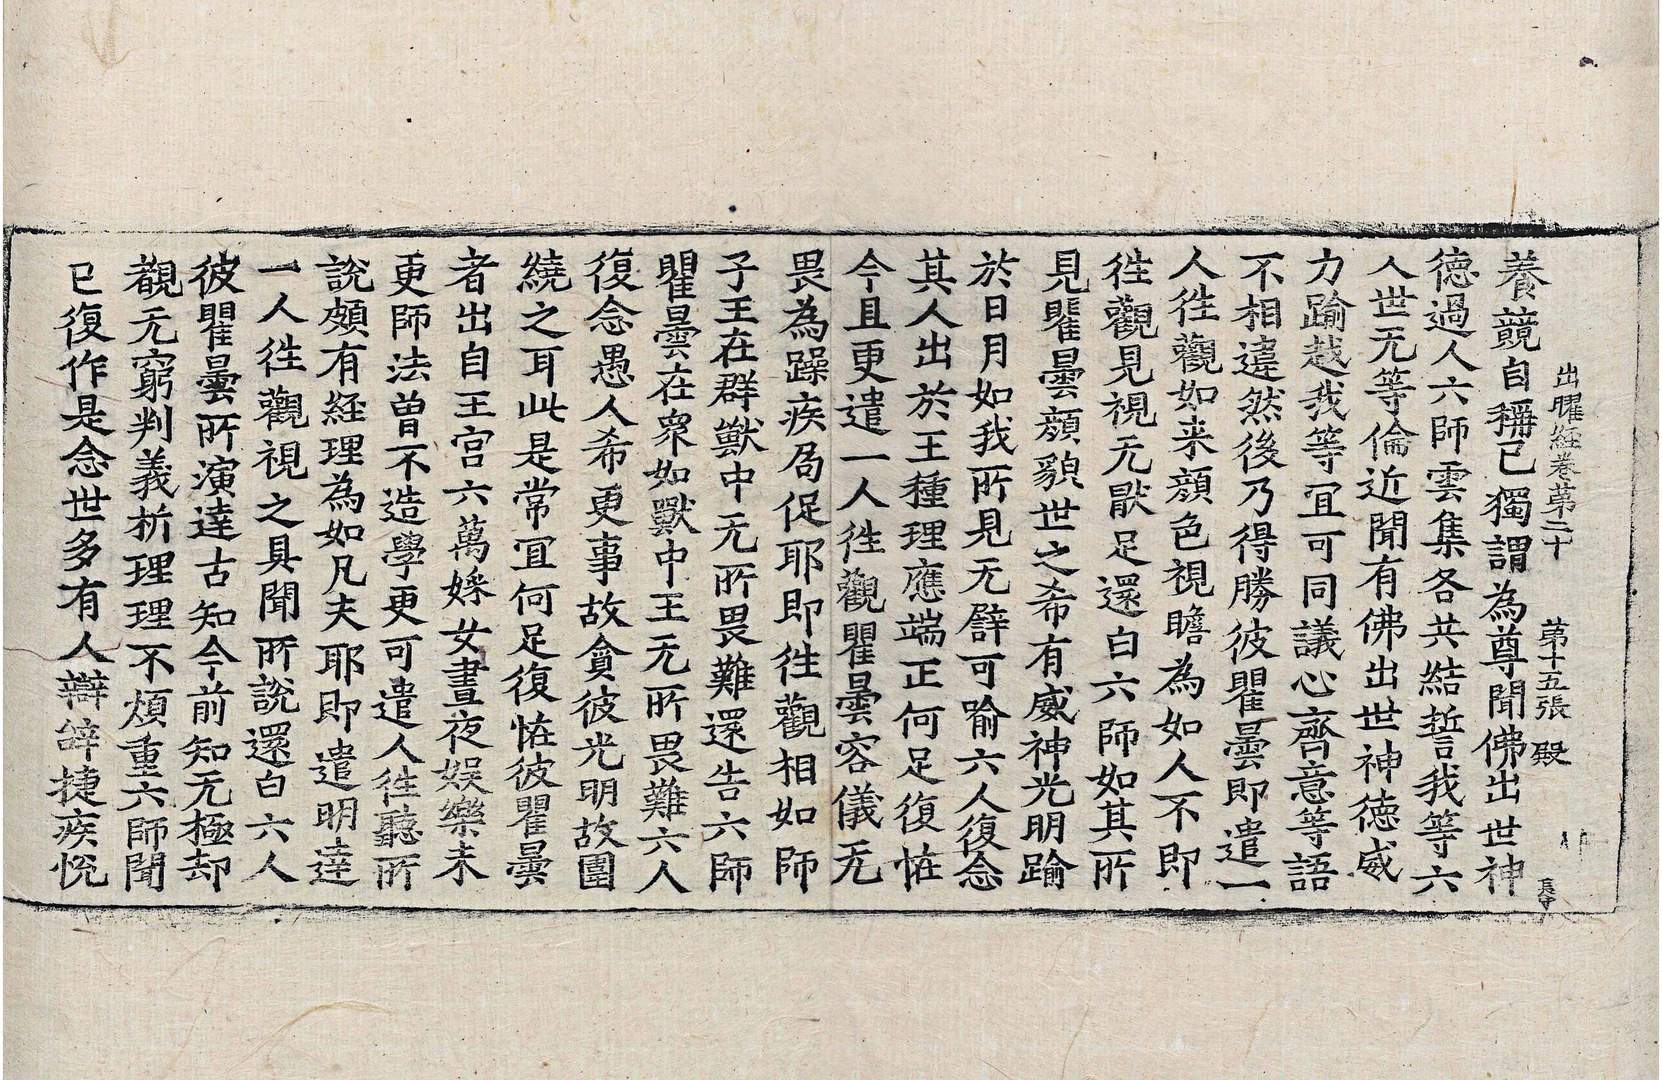 出曜経卷苐二十 苐十五張 殿
養競自稱已獨謂為尊聞佛出世神
德過人六師雲集各共結誓言我等六
人世无等倫近聞有佛出世神德威
力踰越我等冝可同議心齊意等語
不相違然後乃得勝彼瞿曇即遣一
人徃觀如来顔色視瞻為如人不即
徃觀見視无猒足還白六師如其所
見瞿曇顔貌世之希有威神光明踰
於日月如我所見无譬可喻六人復念
其人出於王種理應端正何足復恠
今且更遣一人徃觀瞿曇容儀无
畏為躁疾局促耶即徃觀相如師
子王在群獸中无所畏難還告六師
瞿曇在衆如獸中王无所畏難六人
復念愚人希更事故貪彼光明故圍
繞之耳此是常冝何足復恠彼瞿曇
者出自王宮六萬婇女晝夜娛樂未
更師法曽不造學更可遣人徃聽所
說頗有経理為如凡夫耶即遣明達
一人徃觀視之具聞所說還白六人
彼瞿曇所演達古知今前知无極却
覩无窮判義析理理不煩重六師聞
已復作是念世多有人辯辝捷疾恱